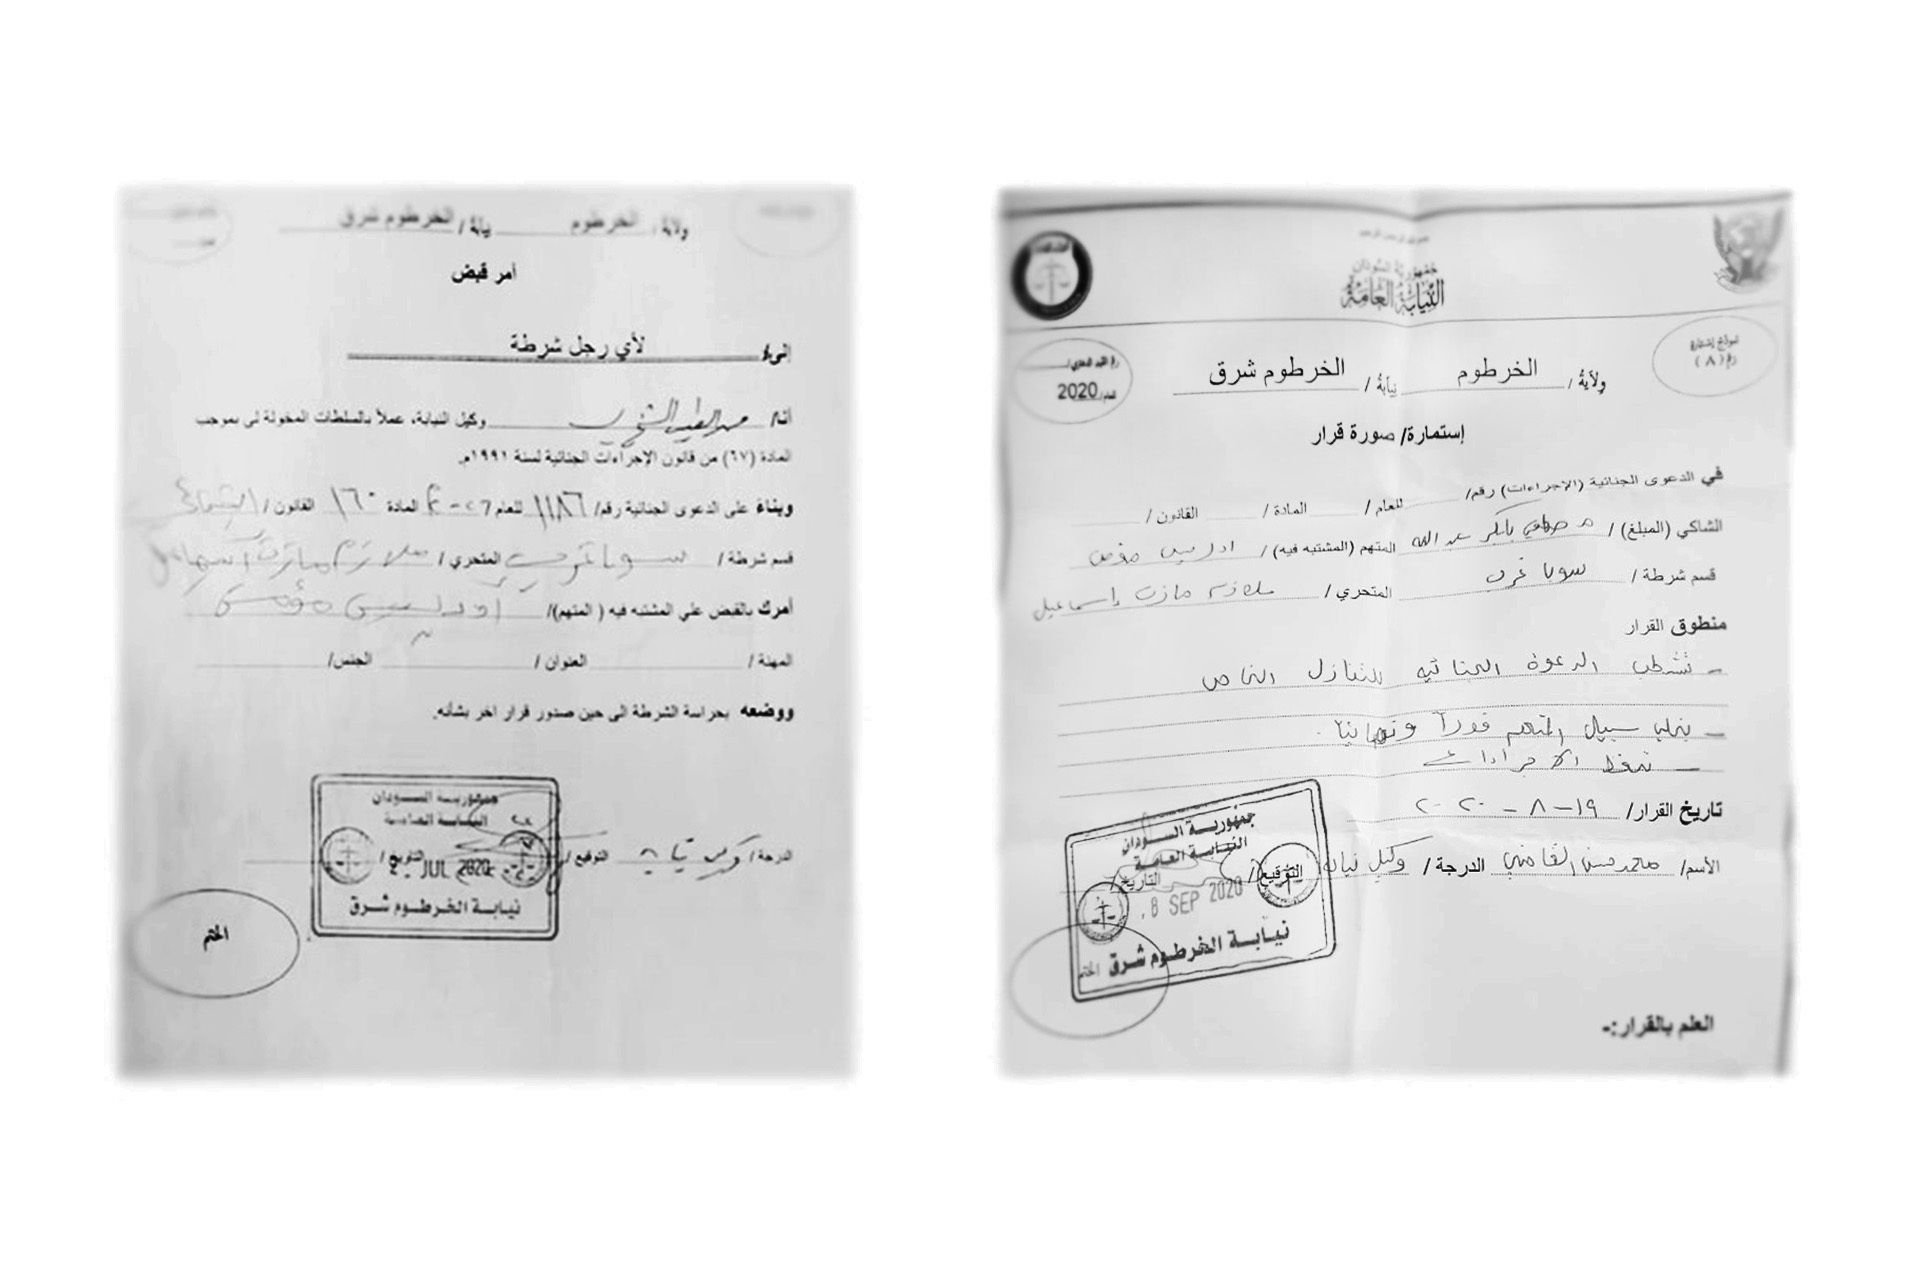 ولاية / الخرطوم نيابة / الخرطوم شرق
أمر قبض
إلى/ لأي رجل شرطة
أنا/ وكيل النيابة، عملاً بالسلطات المخولة لى بموجب
المادة (٦٧) من قانون الإجراءات الجنائية لسنة ١٩٩١م.
وبناءً على الدعوى الجنائية رقم/ ١١٨٦ للعام المادة ١٦٠ القانون /
قسم شرطة / سوبا غرب المتحري / ملازم مازن إسماعيل
أمرك بالقبض علي المشتبه فيه ( المتهم)/
المهنة / العنوان / الجنس/
ووضعه بحراسة الشرطة الى حين صدور قرار اخر بشأنه.
الدرجة / وكيل نيابة التوقيع / التاريخ /
جمهورية السودان
النيابة العامة
JUL 2020
نيابة الخرطوم شرق
الختم
جمهورية السودان
النيابة العامة
نموذج إستمارة
رقم (٨)
2020
ولاية / الخرطوم نيابة / الخرطوم شرق
إستمارة/ صورة قرار
في الدعوى الجنائية (الإجراءات) رقم/ للعام / المادة / القانون /
الشاكي (المبلغ) / بابكر عبد الله المتهم (المشتبه فيه)/
قسم شرطة / سوبا غرب المتحري / ملازم مازن إسماعيل
منطوق القرار
- تشطب الدعوة الجنائيه للتنازل الخاص
- يخلى سبيل المتهم فوراً ونهائياً.
- تحفظ الاجراءات
تاريخ القرار/ ١٩-٨-٢٠٢٠
الأسم/ محمد حسن القاضي الدرجة / وكيل نيابة التوقيع / التاريخ /
جمهورية السودان
النيابة العامة
8 SEP 2020
نيابة الخرطوم شرق
الختم
العلم بالقرار:-